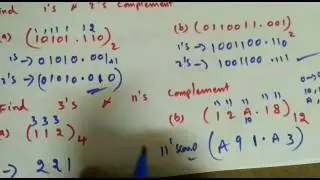 Find 1's & 2's Complement
(a) (10101.110)₂
1's → 01010.001
2's → (01010.010)
(b) (0110011.001)₂
1's → 1001100.110
2's → 1001100.111
Find 3's & 11's Complement
(a) (112)₄
→ 221
(b) (12A.18)₁₂
11's comp (A91.A3)